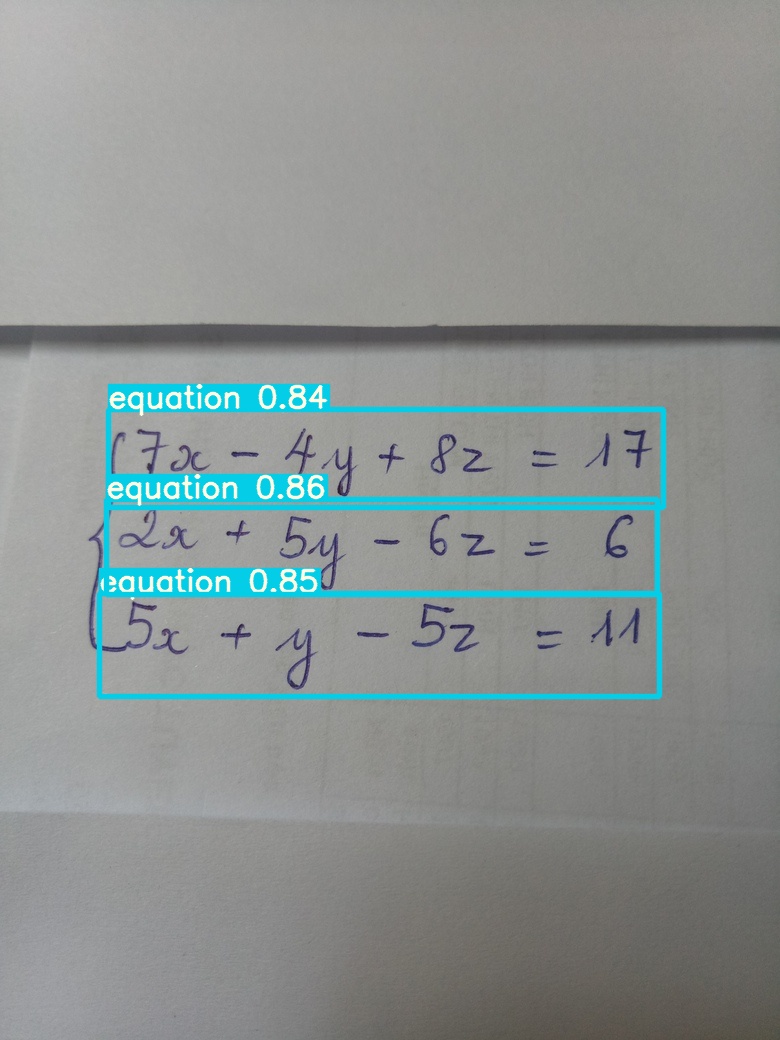 equation 0.84
7x - 4y + 8z = 17
equation 0.86
2x + 5y - 6z = 6
equation 0.85
5x + y - 5z = 11